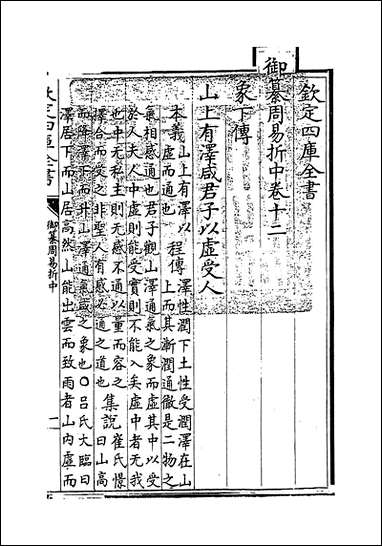 欽定四庫全書
御纂周易折中卷十二
象下傳
山上有澤咸君子以虛受人
本義 山上有澤以虛而通也 程傳 澤性潤下土性受潤澤在山
上而其漸潤通徹是二物之
氣相感通也君子觀山澤通氣之象而虛其中以受
於人夫人中虛則能受實則不能入矣虛中者无我
也中无私主則无感不通以量而容之 集說 崔氏憬
擇合而受之非聖人有感必通之道也 曰山高
而降澤下而升山澤通氣咸之象也○呂氏大臨曰
澤居下而山居高然山能出雲而致雨者山內虛而
欽定四庫全書
御纂周易折中
一